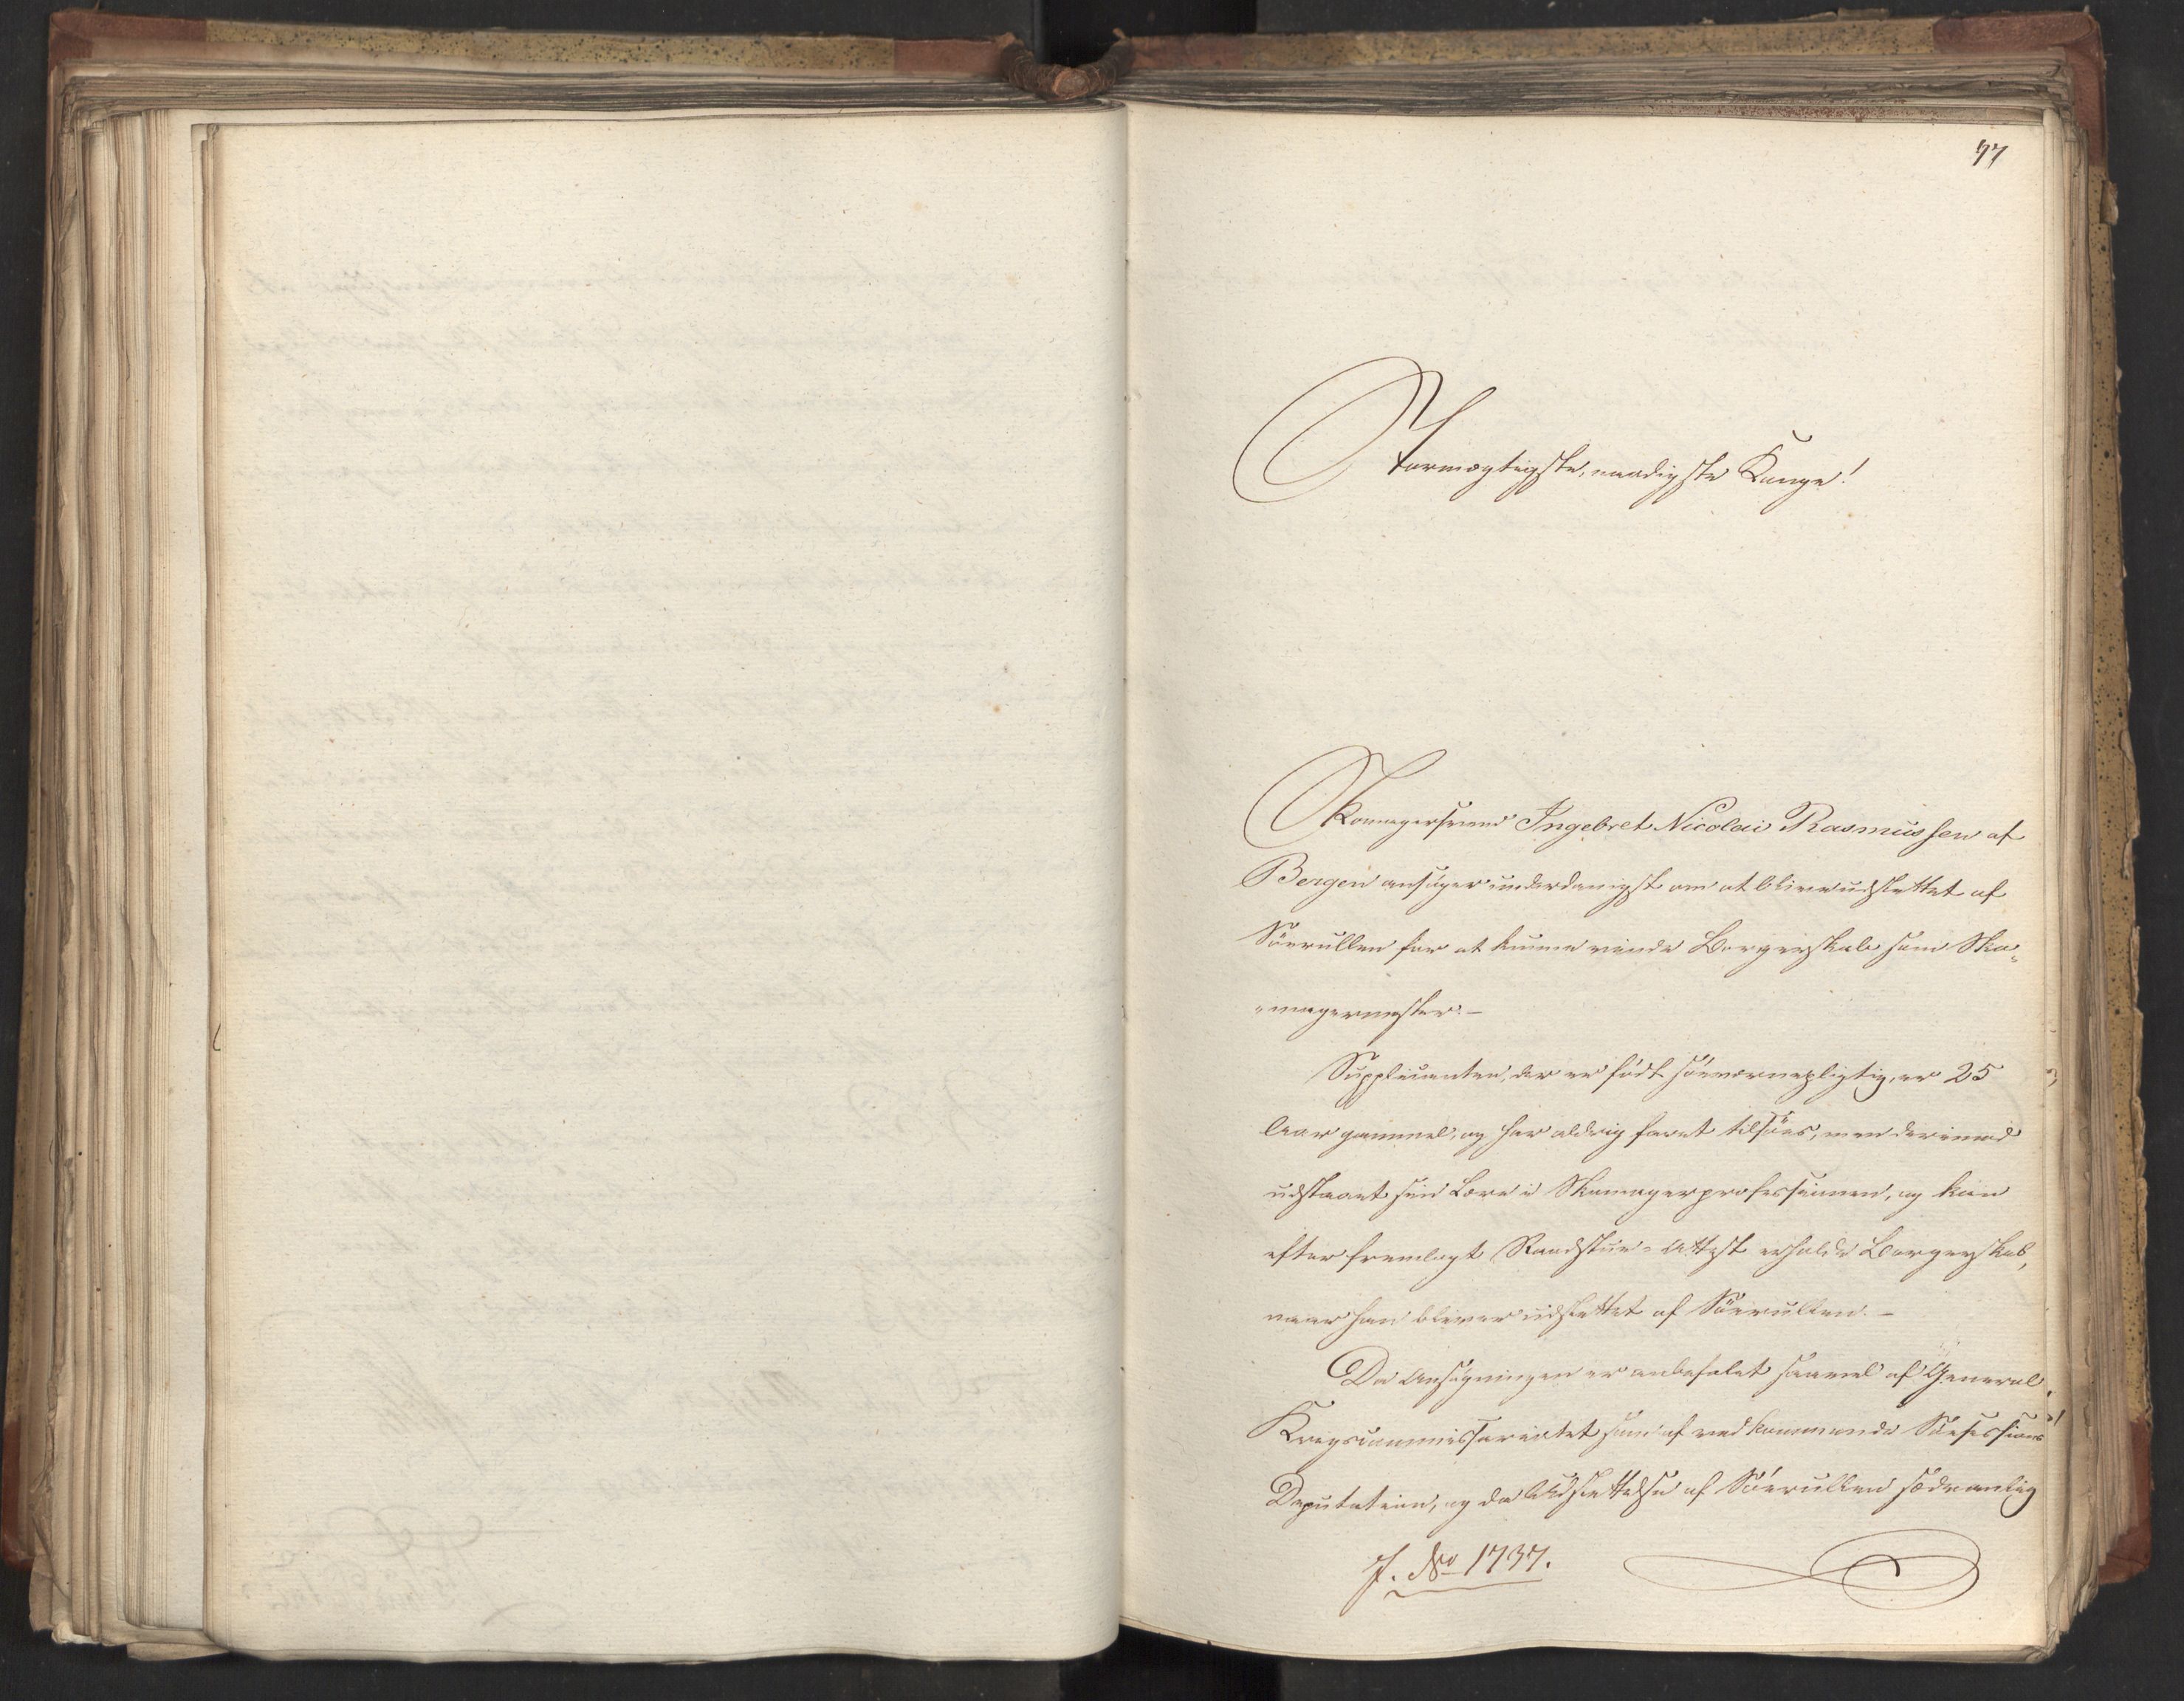 97
Stormægtigste, naadigste Konge!
Skomagersvend Ingebret Nicolai Rasmussen af
Bergen ansöger underdanigst om at blive udslettet af
Söerullen for at kunne vinde Borgerskab som Sko„
„magermester. –
Supplicanten, der er födt söeværnepligtig, er 25
Aar gammel, og har aldrig faret tilsöes, men derimod
udstaaet sin Lære i Skomagerprofessionen, og kan
efter fremlagt Raadstue-Attest erholde Borgerskab,
naar han bliver udslettet af Söerullen. –
Da Ansögningen er anbefalet saavel af General
Krigscommissariatet som af vedkommende Söesessions
Deputation, og da Udslettelse af Söerullen sædvanlig
J. No 1737.